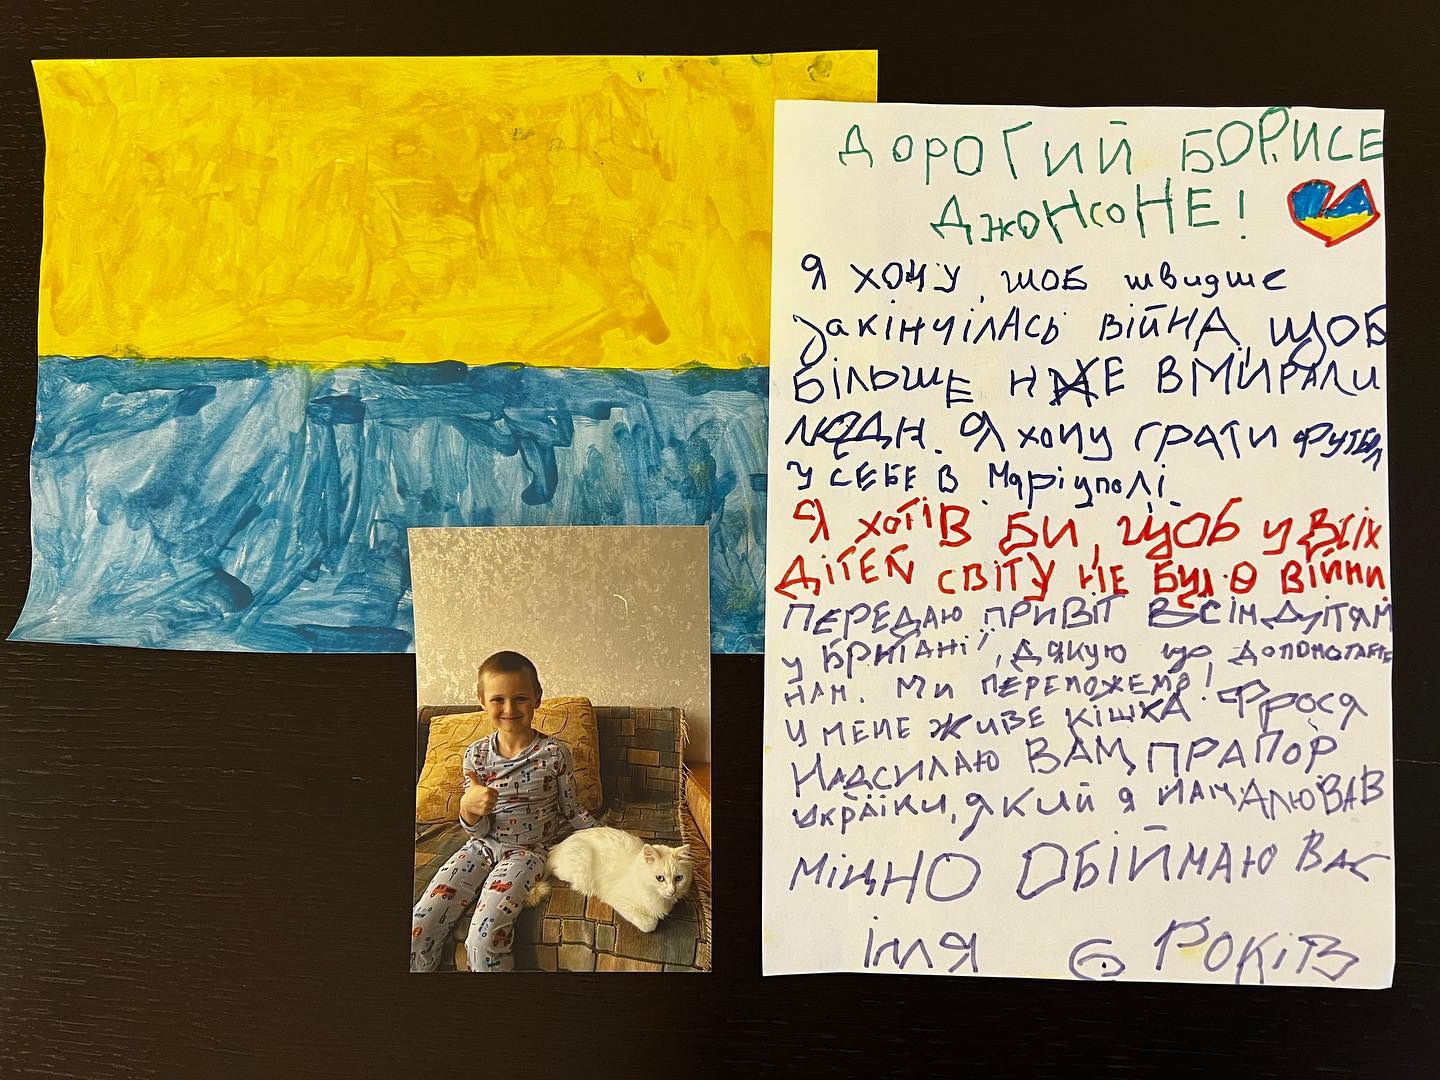 ДОРОГИЙ БОРИСЕ
ДЖОНСОНЕ!
Я ХОЧУ, ЩОБ швидше
закінчілАсь війНА, ЩОБ
БІЛЬШЕ НЕ ВМИРАЛИ
ЛЮДИ. Я хочу ГРАТИ ФУТБОЛ
У СЕБЕ В Маріуполі.
Я ХОТІВ БИ, ЩОБ У ВСІХ
ДІТЕЙ СВІТУ НЕ БУЛО ВІЙНИ
ПЕРЕДАЮ ПРИВІТ ВСІМ ДІТЯМ
У БРИТАНІЇ, ДЯКУЮ що ДОПОМОГАЄТЕ
НАМ. МИ ПЕРЕМОЖЕМО!
У МЕНЕ ЖИВЕ КІШКА ФРОСЯ
НАДСИЛАЮ ВАМ ПРАПОР
України, ЯКИЙ Я НАМАЛЮВАВ
МІЦНО ОБІЙМАЮ ВАС
ІЛЛЯ 6 РОКІВ